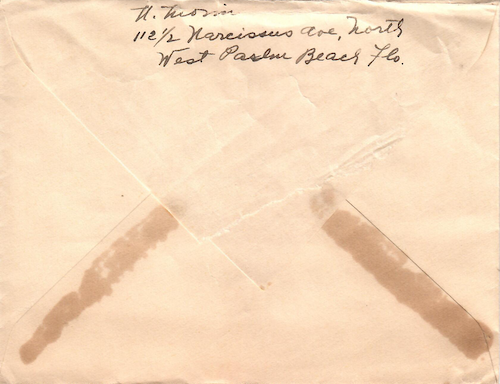 N. Morin
112 1/2 Narcissus Ave, North
West Palm Beach Flo.